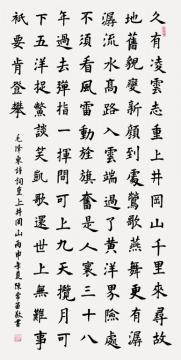 久有凌雲志重上井岡山千里來尋故
地舊貌變新顏到處鶯歌燕舞更有
潺流水高路入雲端過了黃洋界險處
不須看風雷動旌旗奮是人寰三十八
年過去彈指一揮間可上九天攬月可
下五洋捉鱉談笑凱歌還世上無難事
衹要肯登攀
毛澤東詩詞重上井岡山丙申年夏陳書